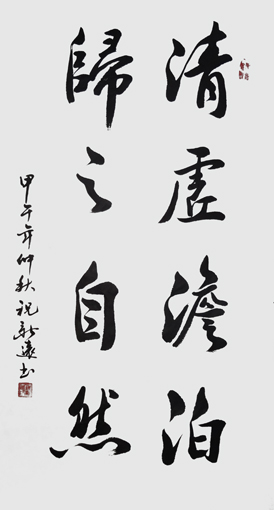 清虚澹泊
歸之自然
甲午年仲秋祝新遠书